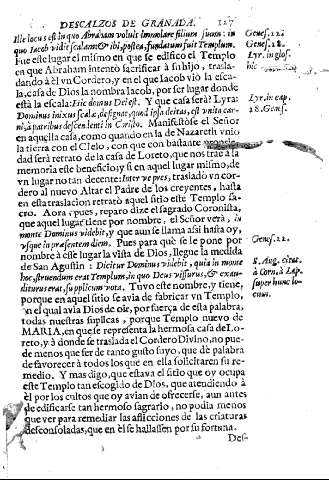 DESCALZOS DE GRANADA. 127
Ille locus est in quo Abraham voluit immolare filium suum: in
quo Iacob vidit scalam: & ibi, postea, fundatum fuit Templum.
Fue este lugar el mismo en que se edifico el Templo
en que Abraham intentó sacrificar à su hijo, trasla
dando à èl vn Cordero, y en el que Iacob viò la esca-
la, casa de Dios la nombra Iacob, por ser lugar donde
està la escala: Hic domus Dei est. Y que casa serà? Lyra:
Dominus inixus scalæ, designat, quod ipsa deitas, est vnita car-
ni, à patribus descendenti in Cristo. Manifestòse el Señor
en aquella casa, como quando en la de Nazareth vniò
la tierra con el Cielo, con que con bastante
dad serà retrato de la casa de Loreto, que nos trae à la
memoria este beneficio; y si en aquel lugar mismo, de
vn lugar no tan decente: Inter vepres, trasladò vn cor-
dero al nuevo Altar el Padre de los creyentes, hasta
en esta traslacion retratò aquel sitio este Templo sa-
cro. Aora pues, reparo dize el sagrado Coronista,
que aquel lugar tiene por nombre, el Señor verà, in
monte Dominus videbit, y que aun se llama asi hasta oy,
vsque in presentem diem. Pues para què se le pone por
nombre à esse lugar la vista de Dios, llegue la medida
de San Agustin: Dicitur Dominus videbit, quia in monte
hoc, struendum erat Templum, in quo Deus visurus, & exau-
diturus erat, supplicum vota. Tuvo este nombre, y tiene,
porque en aquel sitio se avia de fabricar vn Templo,
en el qual avia Dios de oir, por fuerça de esta palabra,
todas nuestras suplicas, porque Templo nuevo de
MARIA, en que se representa la hermosa casa de Lo-
reto, y à donde se traslada el Cordero Divino, no pue-
de menos que ser de tanto gusto suyo, que dè palabra
de favorecer à todos los que en ella solicitaren su re-
medio. Y mas digo, que estava el sitio que oy ocupa
este Templo tan escogido de Dios, que atendiendo à
èl por los cultos que oy avian de ofrecerse, aun antes
de edificarse tan hermoso sagrario, no podia menos
que ver para remediar las aflicciones de las criaturas
desconsoladas, que en èl se hallassen por su fortuna.
Des-
Genes. 22.
Genes. 28.
Lyr. in glos.
hic
Lyr. in cap.
28. Genes.
Genes. 22.
S. Aug. citat.
à Corn. à Lap.
super hunc lo-
cum.